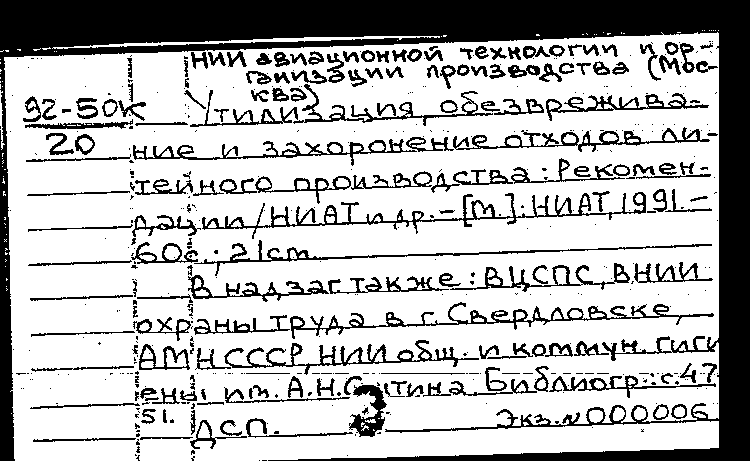 НИИ авиационной технологии и ор-
ганизации производства (Мос-
ква)
92-50К
20
Утилизация, обезврежива-
ние и захоронение отходов ли-
тейного производства: Рекомен-
дации/НИАТ и др. - [М.]: НИАТ, 1991. -
60с.; 21см.
В надзаг. также: ВЦСПС, ВНИИ
охраны труда в г. Свердловске,
АМН СССР, НИИ общ. и коммун. гиги
ены им. А.Н. Библиогр.: с. 47
51.
ДСП.
З
Экз. N 000006